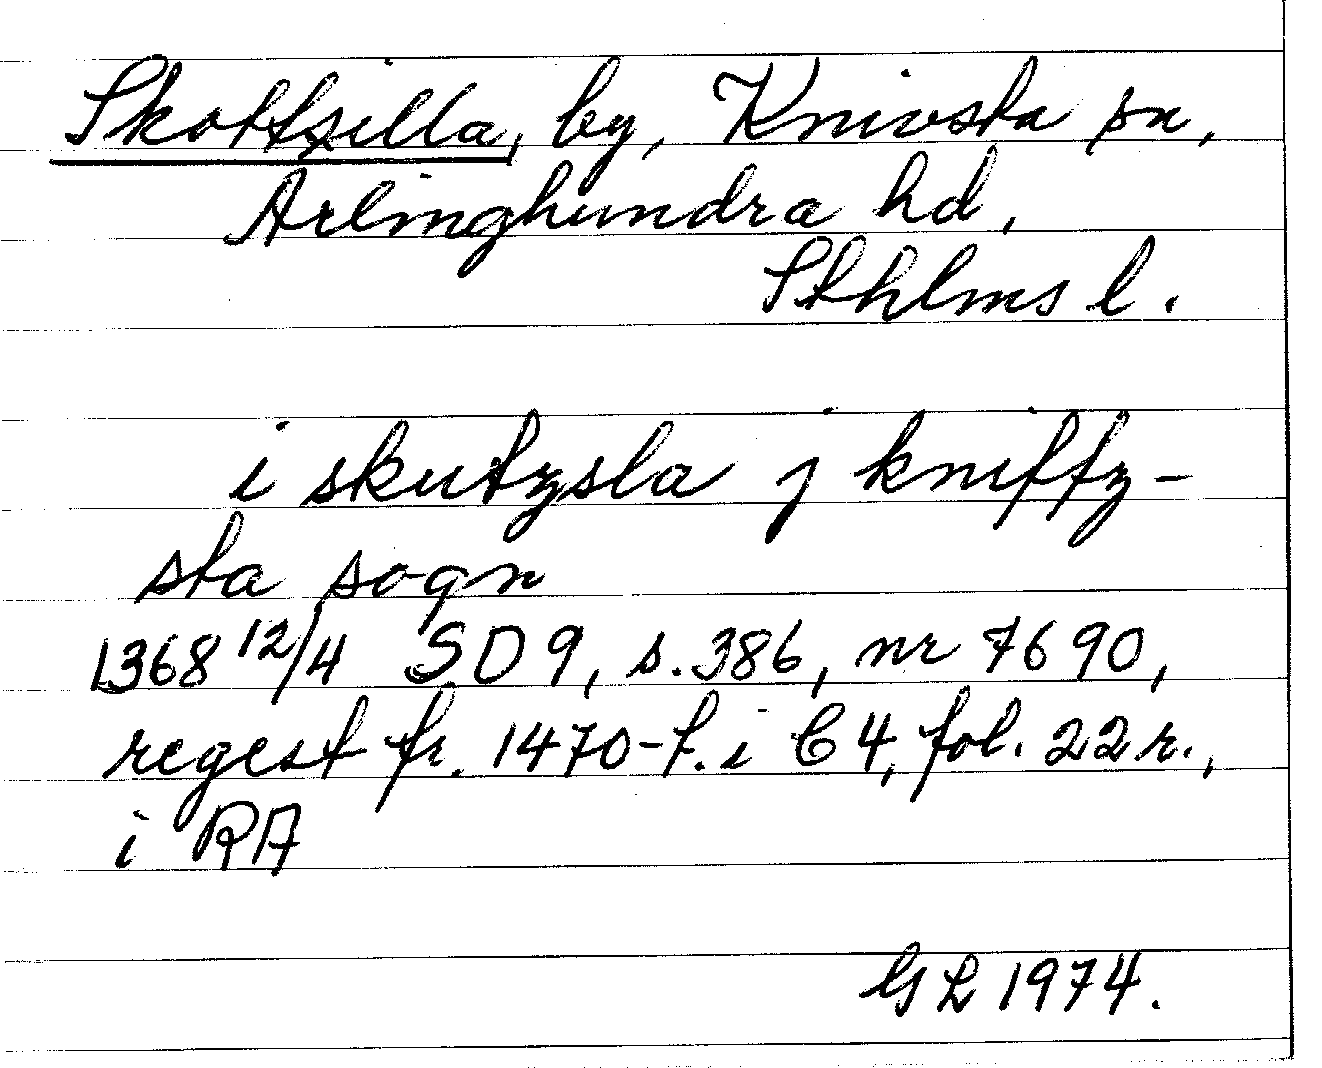 Skottsilla, by, Knivsta sn,
Ärlinghundra hd,
Sthlms l.
i skutzsla j kniffz-
sta sogn
1368 12/4 SD 9, s. 386, nr 7690,
regest fr. 1470-t. i C 4, fol. 22 r.,
i RA
GL 1974.